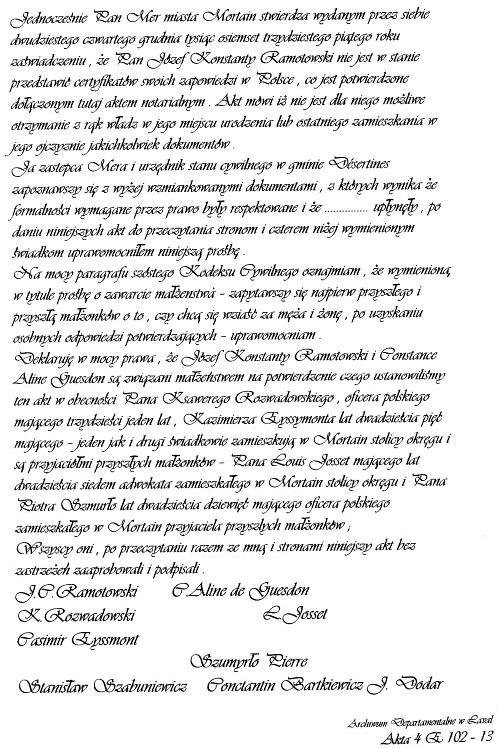 Jednocześnie Pan Mer miasta Mortain stwierdza wydanym przez siebie
dwudziestego czwartego grudnia tysiąc osiemset trzydziestego piątego roku
zaświadczeniu , że Pan Józef Konstanty Ramotowski nie jest w stanie
przedstawić certyfikatów swoich zapowiedzi w Polsce , co jest potwierdzone
dołączonym tutaj aktem notarialnym . Akt mówi iż nie jest dla niego możliwe
otrzymanie z rąk władz w jego miejscu urodzenia lub ostatniego zamieszkania w
jego ojczyźnie jakichkolwiek dokumentów .
Ja zastępca Mera i urzędnik stanu cywilnego w gminie Désertines
zapoznawszy się z wyżej wzmiankowanymi dokumentami , z których wynika że
formalności wymagane przez prawo były respektowane i że ............... upłynęły , po
daniu niniejszych akt do przeczytania stronom i czterem niżej wymienionym
świadkom uprawomocniłem niniejszą prośbę .
Na mocy paragrafu szóstego Kodeksu Cywilnego oznajmiam , że wymienioną
w tytule prośbę o zawarcie małżenstwa - zapytawszy się najpierw przyszłego i
przyszłą małżonków o to , czy chcą się wziaść za męża i żonę , po uzyskaniu
osobnych odpowiedzi potwierdzających - uprawomocniam .
Deklaruję w mocy prawa , że Józef Konstanty Ramotowski i Constance
Aline Guesdon są związani małżeństwem na potwierdzenie czego ustanowiliśmy
ten akt w obecności Pana Ksawerego Rozwadowskiego , oficera polskiego
mającego trzydzieści jeden lat , Kazimierza Eyssymonta lat dwadzieścia pięć
mającego - jeden jak i drugi świadkowie zamieszkują w Mortain stolicy okręgu i
są przyjaciółmi przyszłych małżonków - Pana Louis Josset mającego lat
dwadzieścia siedem adwokata zamieszkałego w Mortain stolicy okręgu i Pana
Piotra Szmurło lat dwadzieścia dziewięć mającego oficera polskiego
zamieszkałego w Mortain przyjaciela przyszłych małżonków ;
Wszyscy oni , po przeczytaniu razem ze mną i stronami niniejszy akt bez
zastrzeżeń zaaprobowali i podpisali .
J.C.Ramotowski C.Aline de Guesdon
K.Rozwadowski L.Josset
Casimir Eyssmont
Szumyrło Pierre
Stanisław Szabuniewicz Constantin Bartkiewicz J. Dodar
Archiwum Departamentalne w Laval
Akta 4 E 102 - 13